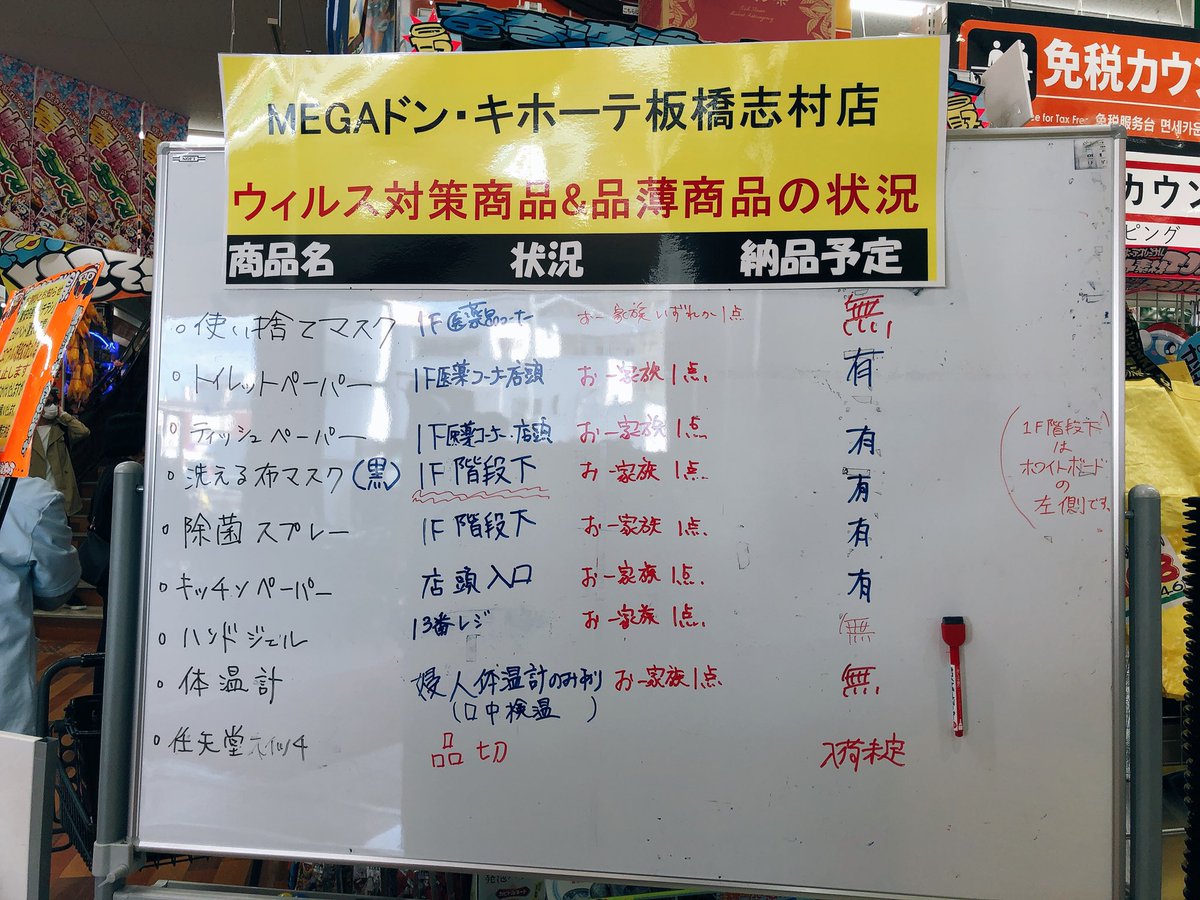 MEGAドン・キホーテ板橋志村店
ウィルス対策商品&品薄商品の状況
商品名 状況 納品予定
。使い捨てマスク 1F医薬品コーナー お一家族いずれか1点 無
。トイレットペーパー 1F医薬コーナー店頭 お一家族1点. 有
。ティッシュペーパー 1F医薬コーナー.店頭 お一家族1点 有
。洗える布マスク(黒) 1F階段下 お一家族1点. 有
。除菌スプレー 1F階段下 お一家族1点. 有
。キッチンペーパー 店頭入口 お一家族1点. 有
。ハンドジェル 13番レジ お一家族1点. 無
。体温計 婦人体温計のみ有り お一家族1点. 無
(口中検温 )
。任天堂スイッチ 品切 入荷未定
(1F階段下)
は
ホワイトボード
の
左側です。
免税カウン
ce for Tax Free 免税服务台 면세카운
カウン
ピング